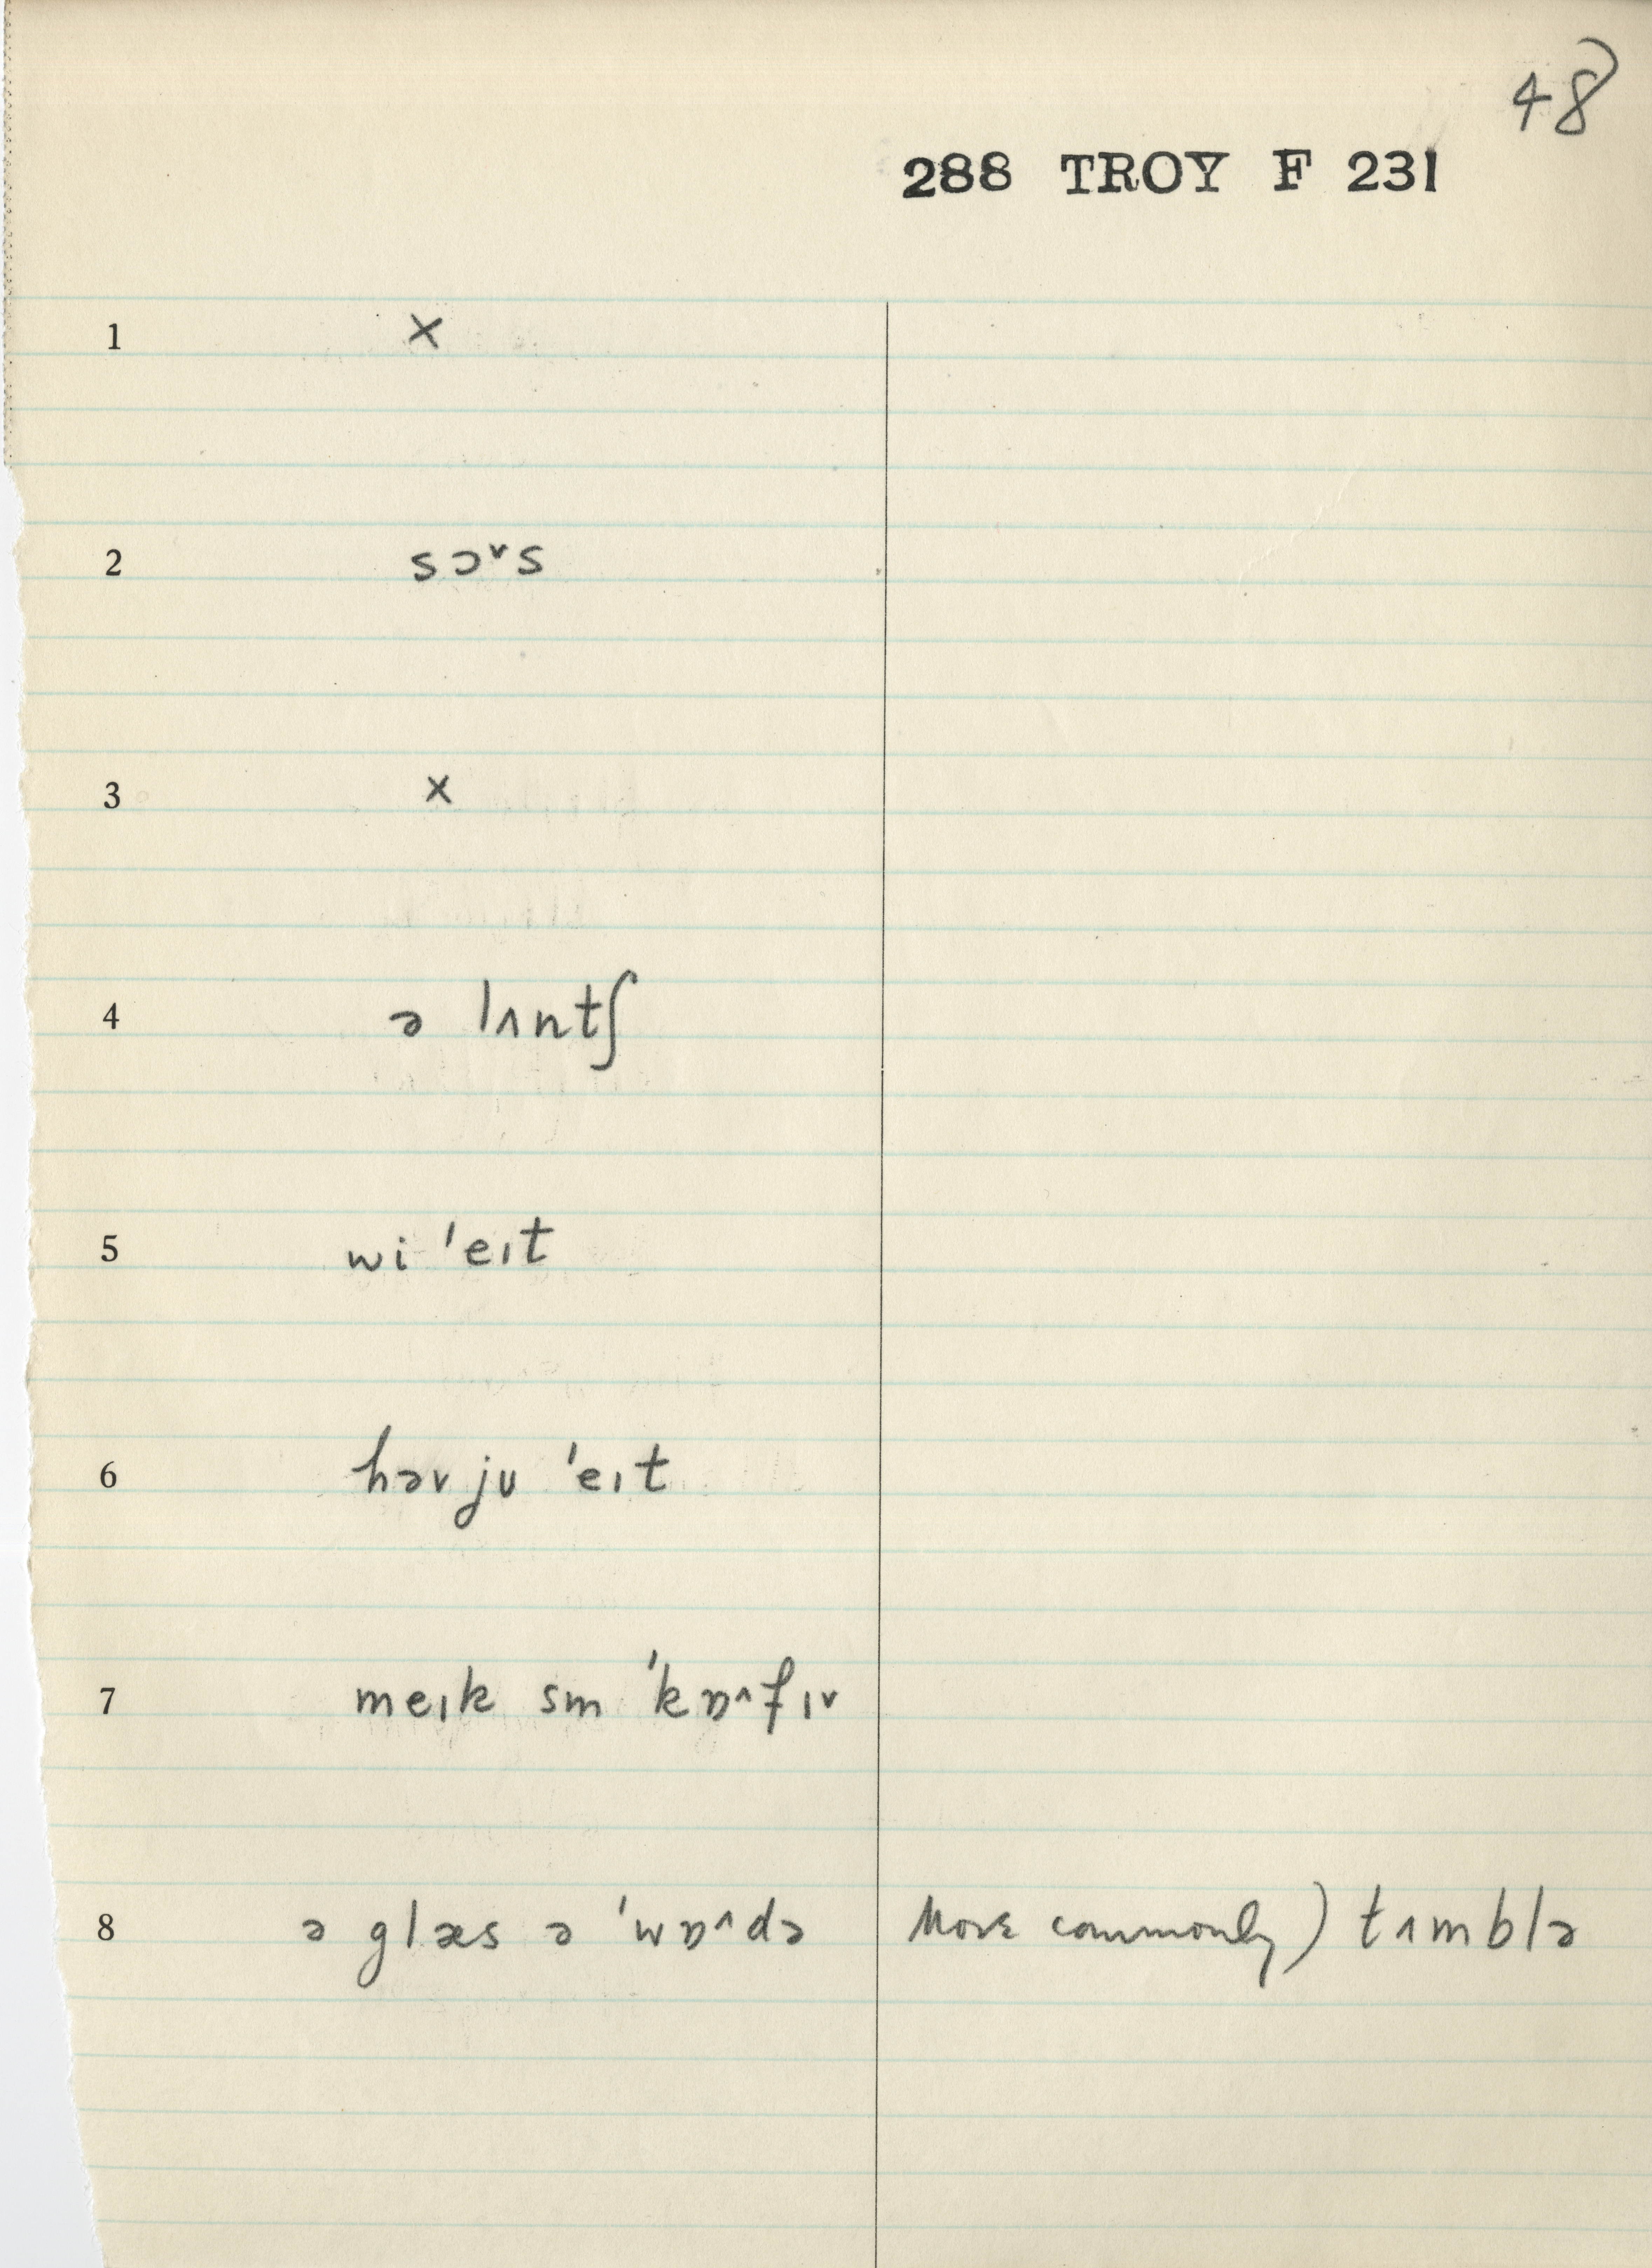 48
288 TROY F 231
1 ×
2 sɔ˅s
3 ×
4 ə lʌntʃ
5 wi ˈeɪt
6 həv jʊ ˈeɪt
7 meɪk sm ˈkɒ˄fɪ˅
8 ə glæs ə ˈwɒ˄də More commonly) tʌmblə